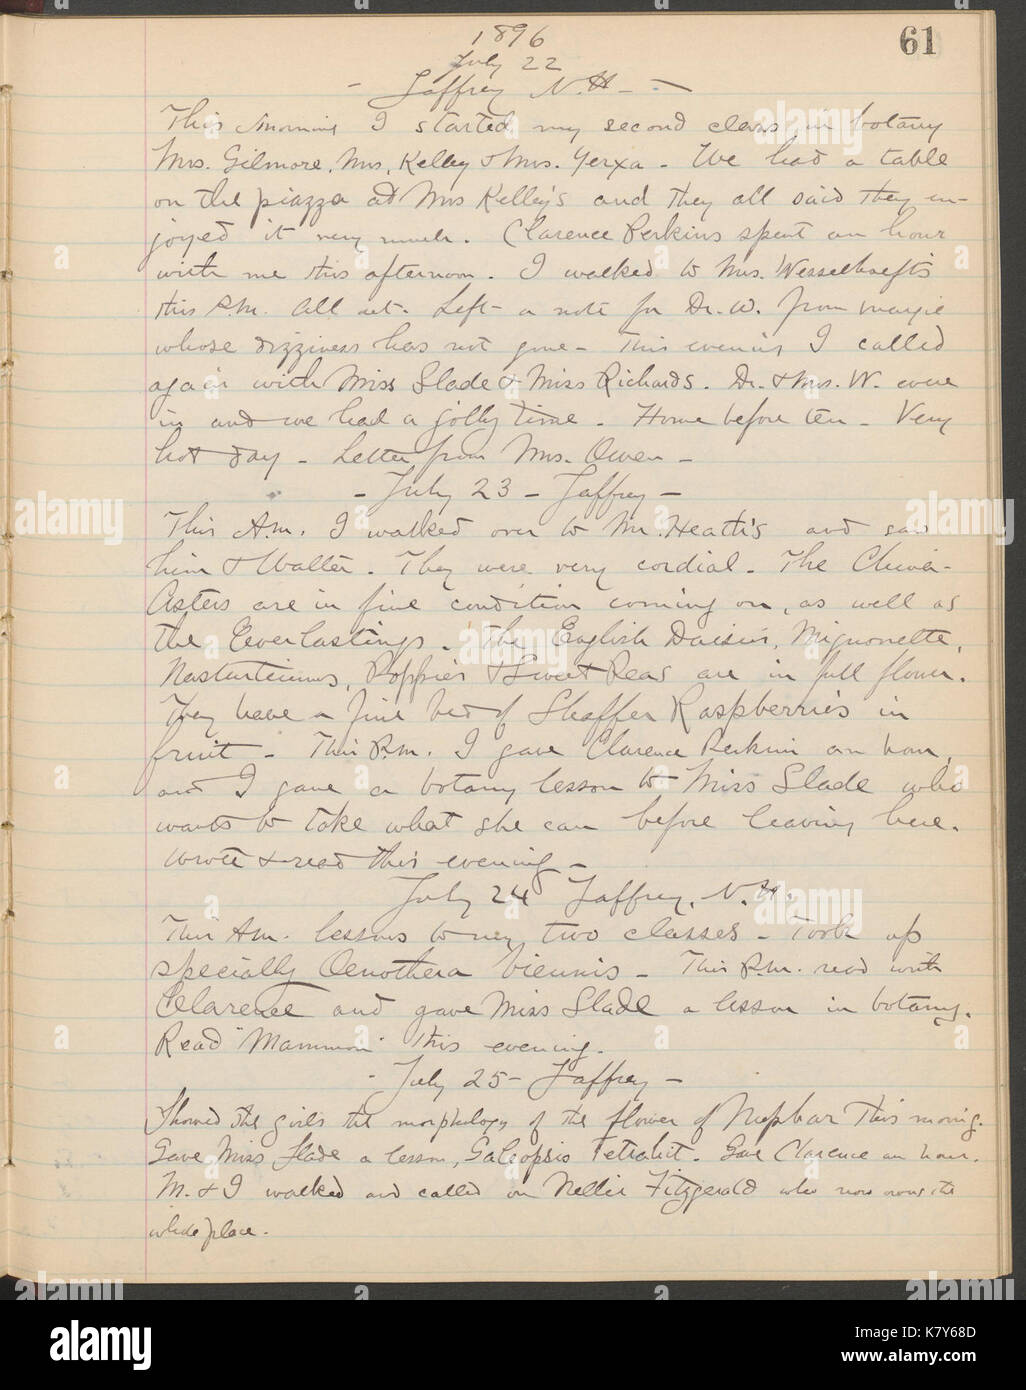 61
1896
July 22
- Jaffrey N.H. -
This morning I started my second class in botany
Mrs. Gilmore, Mrs. Kelley & Mrs. Yerxa - We had a table
on the piazza at Mrs Kelley's and they all said they en-
joyed it very much. Clarence Perkins spent an hour
with me this afternoon. I walked to Mrs. Wesselhoeft's
this P.M. All out. Left a note for Dr. W. from Margie
whose dizziness has not gone - This evening I called
again with Miss Slade & Miss Richards. Dr. & Mrs. W. were
in and we had a jolly time. Home before ten - Very
hot day - Letter from Mrs. Owen -
- July 23 - Jaffrey -
This A.M. I walked over to Mr. Heath's and saw
him & Walter. They were very cordial. The China-
Asters are in fine condition coming on, as well as
the Everlastings. The English Daisies, Mignonette,
Nasturtiums, Poppies & Sweet Peas are in full flower.
They have a fine bed of Shaffer Raspberries in
fruit - This P.M. I gave Clarence Perkins an hour,
and I gave a botany lesson to Miss Slade who
wants to take what she can before leaving here.
Wrote & read this evening -
July 24 Jaffrey, N.H.
This A.M. lessons to my two classes - Took up
specially Oenothera biennis - This P.M. read with
Clarence and gave Miss Slade a lesson in botany.
Read "Mammon" this evening.
- July 25 - Jaffrey -
Showed the girls the morphology of the flower of Nuphar this morning.
Gave Miss Slade a lesson, Galeopsis Tetrahit. Gave Clarence an hour.
M. & I walked and called on Nellie Fitzgerald who now owns the
whole place.
alamy
www.alamy.com
Image ID: K7Y68D